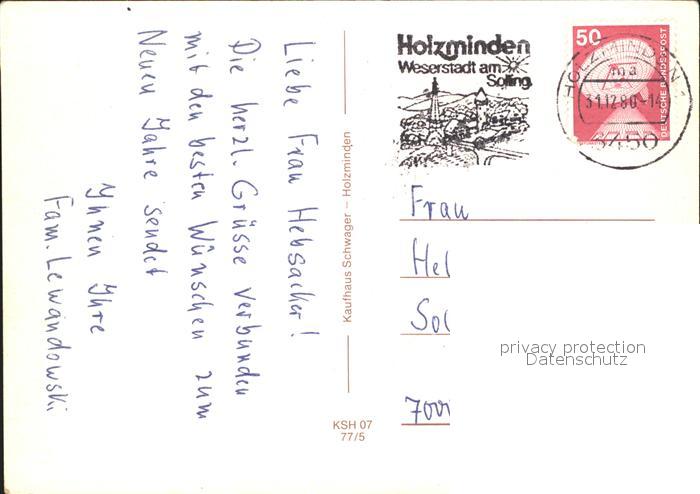 Liebe Frau Hebsacker!
Die herzl. Grüsse verbunden
mit den besten Wünschen zum
Neuen Jahre sendet
Ihnen Ihre
Fam. Lewandowski
Kaufhaus Schwager – Holzminden
KSH 07
77/5
Holzminden
Weserstadt am
Solling
50
DEUTSCHE BUNDESPOST
HOLZMINDEN 1
ma
31.12.80-14
3450
Frau
Hel
Sol
700
privacy protection
Datenschutz